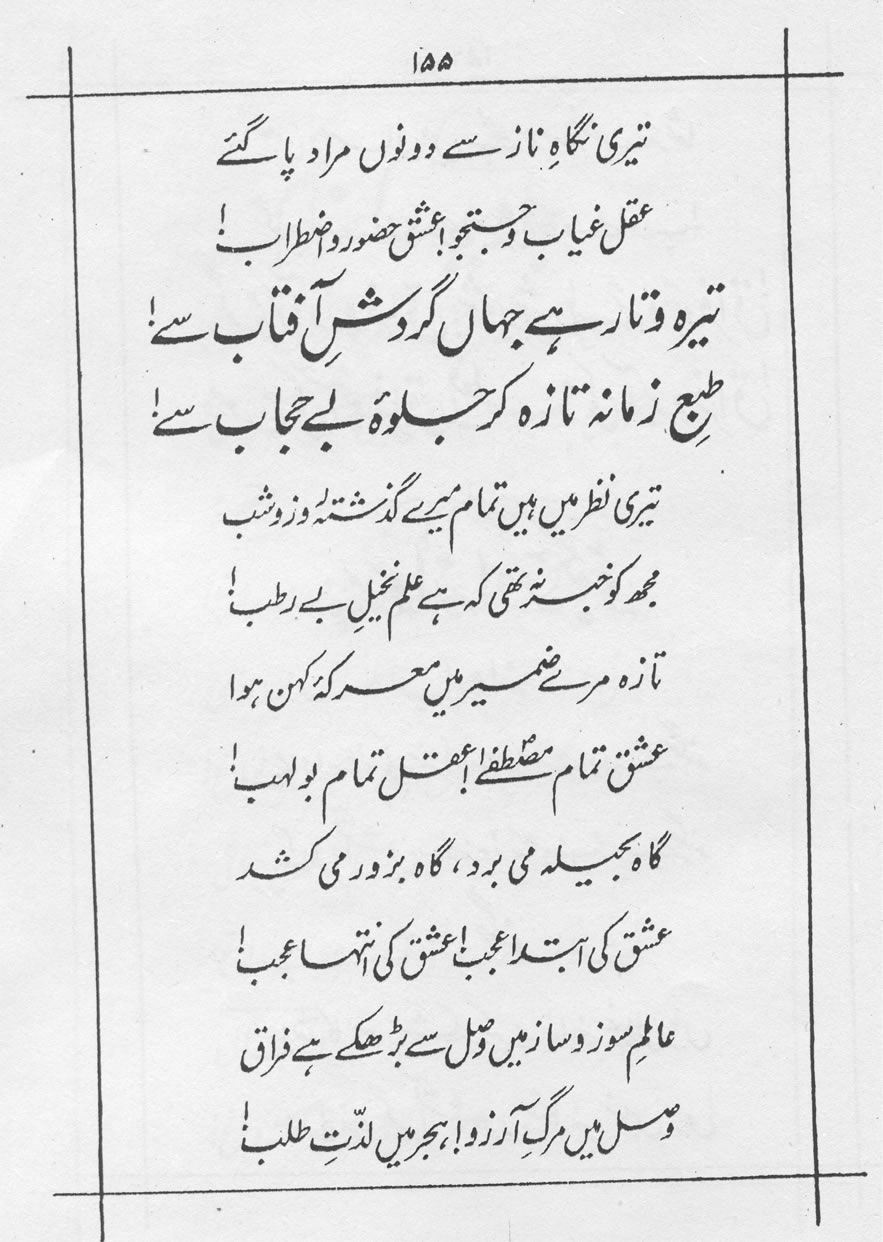 ۱۵۵
تیری نگاہِ ناز سے دونوں مراد پا گئے
عقل غیاب و جستجو! عشق حضور و اضطراب!
تیرہ و تار ہے جہاں گردشِ آفتاب سے!
طبعِ زمانہ تازہ کر جلوۂ بے حجاب سے!
تیری نظر میں ہیں تمام میرے گذشتہ روز و شب
مجھ کو خبر نہ تھی کہ ہے علم نخیلِ بے رطب!
تازہ مرے ضمیر میں معرکۂ کہن ہوا
عشق تمام مصطفےٰؐ! عقل تمام بولہب!
گاہ بحیلہ می برد، گاہ بزور می کشد
عشق کی ابتدا عجب! عشق کی انتہا عجب!
عالمِ سوز و ساز میں وصل سے بڑھکے ہے فراق
وصل میں مرگِ آرزو! ہجر میں لذّتِ طلب!